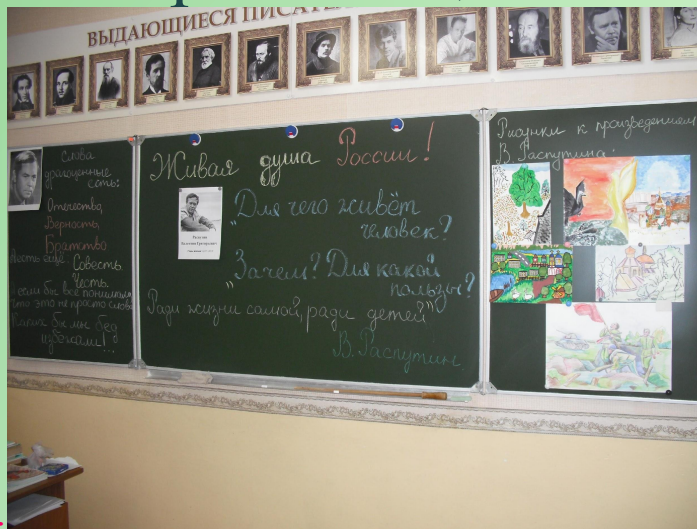 ВЫДАЮЩИЕСЯ ПИСАТЕ
Слова
драгоценные
есть:
Отечество,
Верность,
Братство
А есть ещё Совесть
и
Честь.
если бы все понимали
что это не просто слова
Каких бы мы бед
избежали!
Живая душа России!
"Для чего живёт
человек?
"Зачем? Для какой
пользы?
Ради жизни самой, ради детей"
В. Распутин
Рисунки к произведениям
В. Распутина